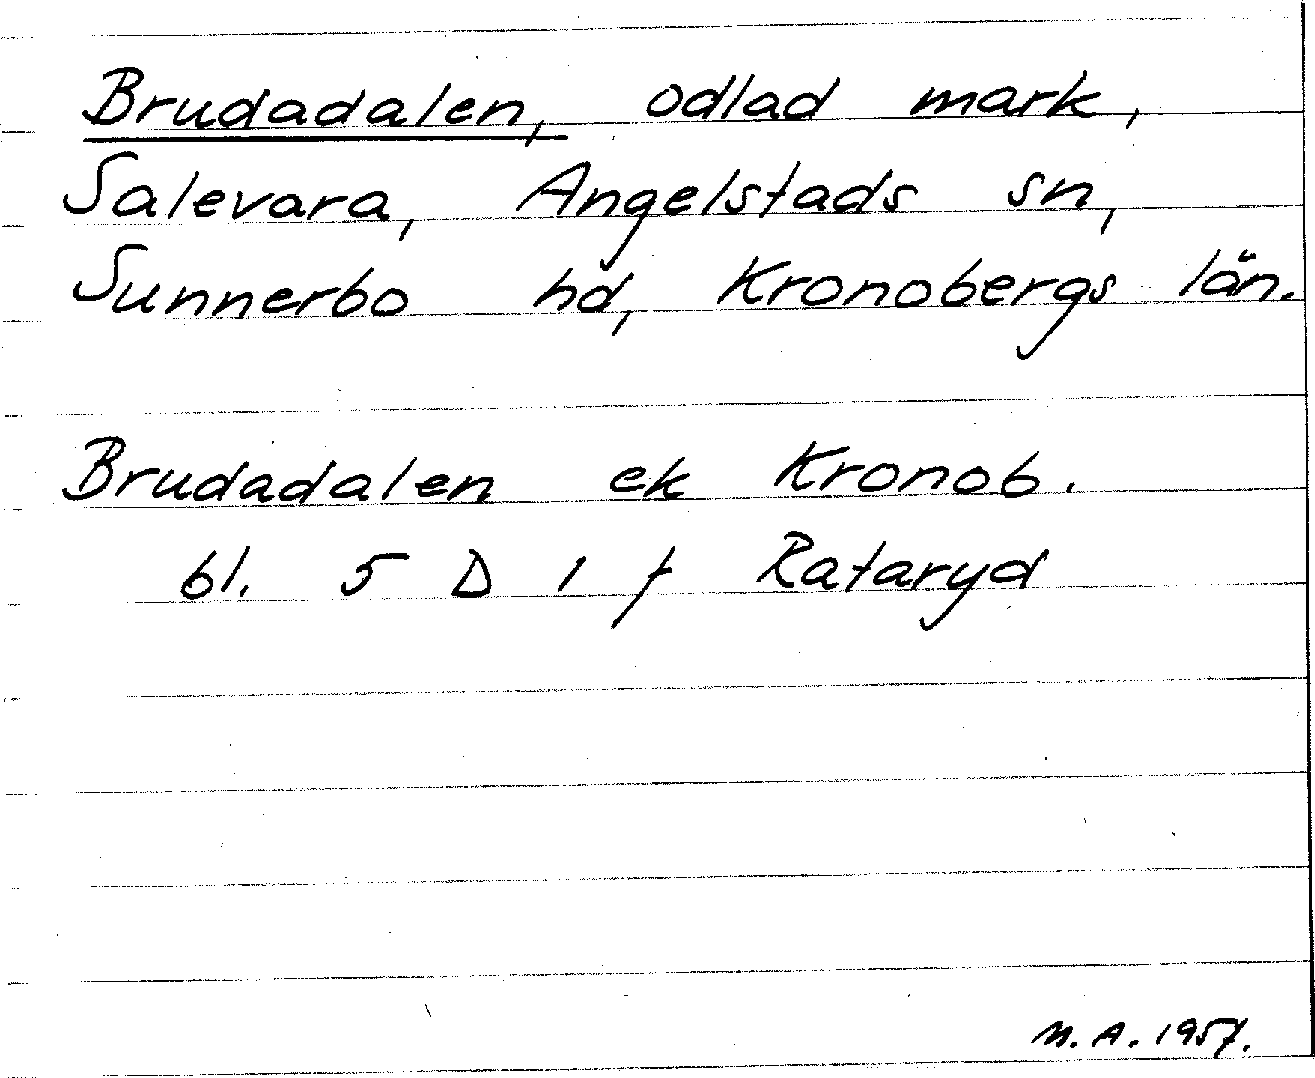 Brudadalen, odlad mark,
Salevara, Angelstads sn,
Sunnerbo hd, Kronobergs län.
Brudadalen ek Kronob.
bl. 5 D 1 f Rataryd
M. A. 1957.